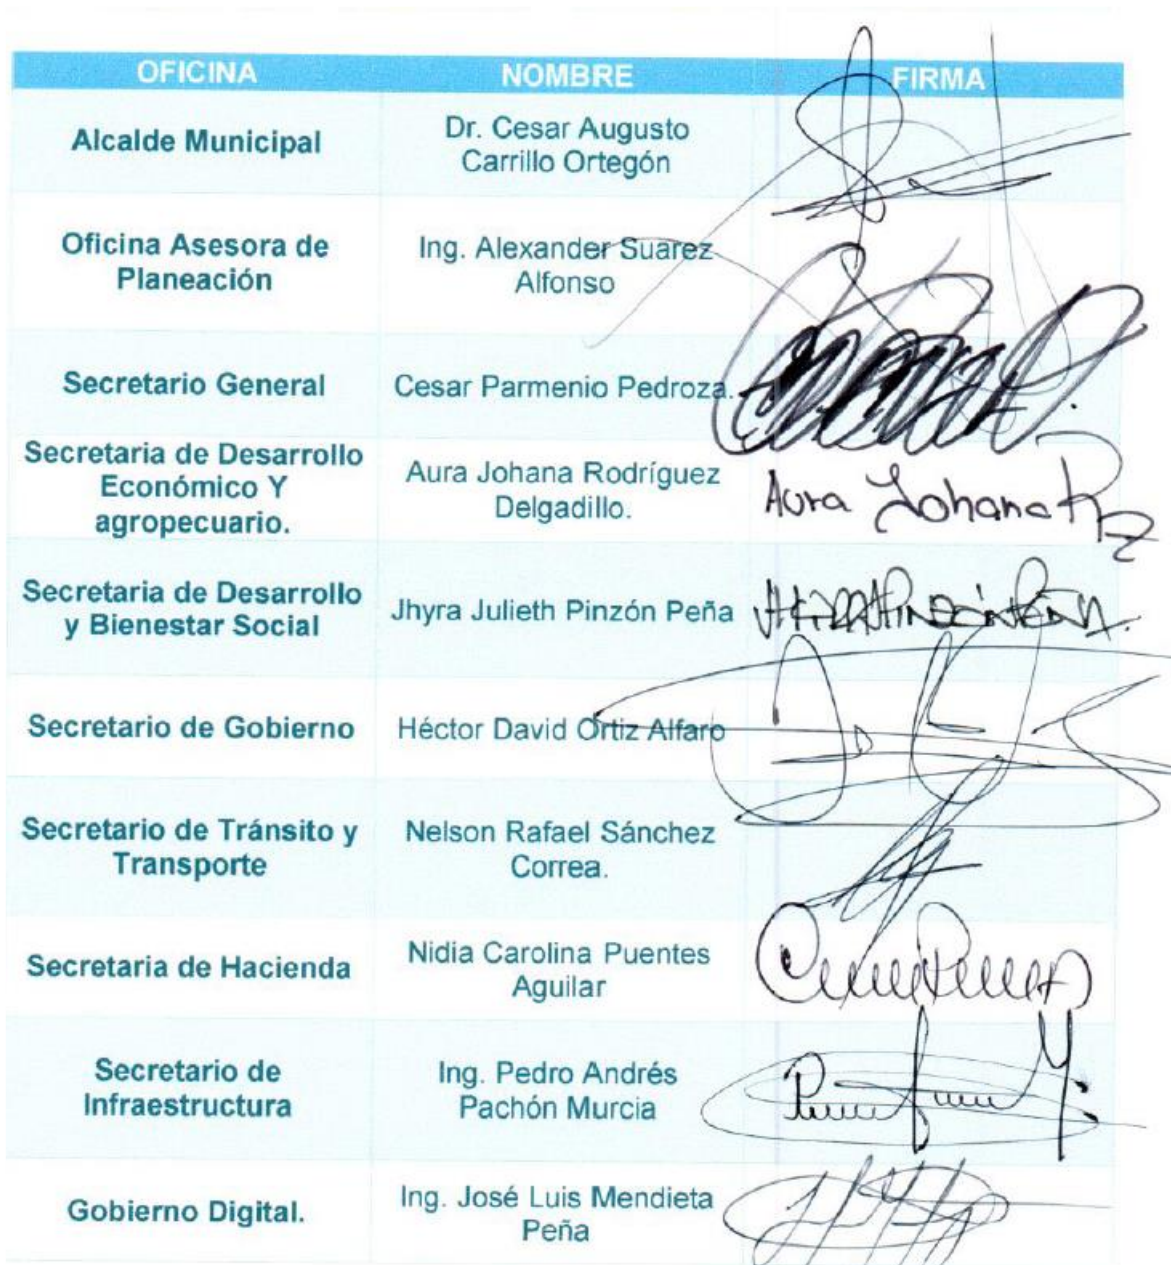 OFICINA NOMBRE FIRMA
Alcalde Municipal
Dr. Cesar Augusto
Carrillo Ortegón
Oficina Asesora de
Planeación
Ing. Alexander Suarez
Alfonso
Secretario General
Cesar Parmenio Pedroza.
Secretaria de Desarrollo
Económico Y
agropecuario.
Aura Johana Rodríguez
Delgadillo.
Aura Johana Rz
Secretaria de Desarrollo
y Bienestar Social
Jhyra Julieth Pinzón Peña
Secretario de Gobierno
Héctor David Ortiz Alfaro
Secretario de Tránsito y
Transporte
Nelson Rafael Sánchez
Correa.
Secretaria de Hacienda
Nidia Carolina Puentes
Aguilar
Secretario de
Infraestructura
Ing. Pedro Andrés
Pachón Murcia
Gobierno Digital.
Ing. José Luis Mendieta
Peña